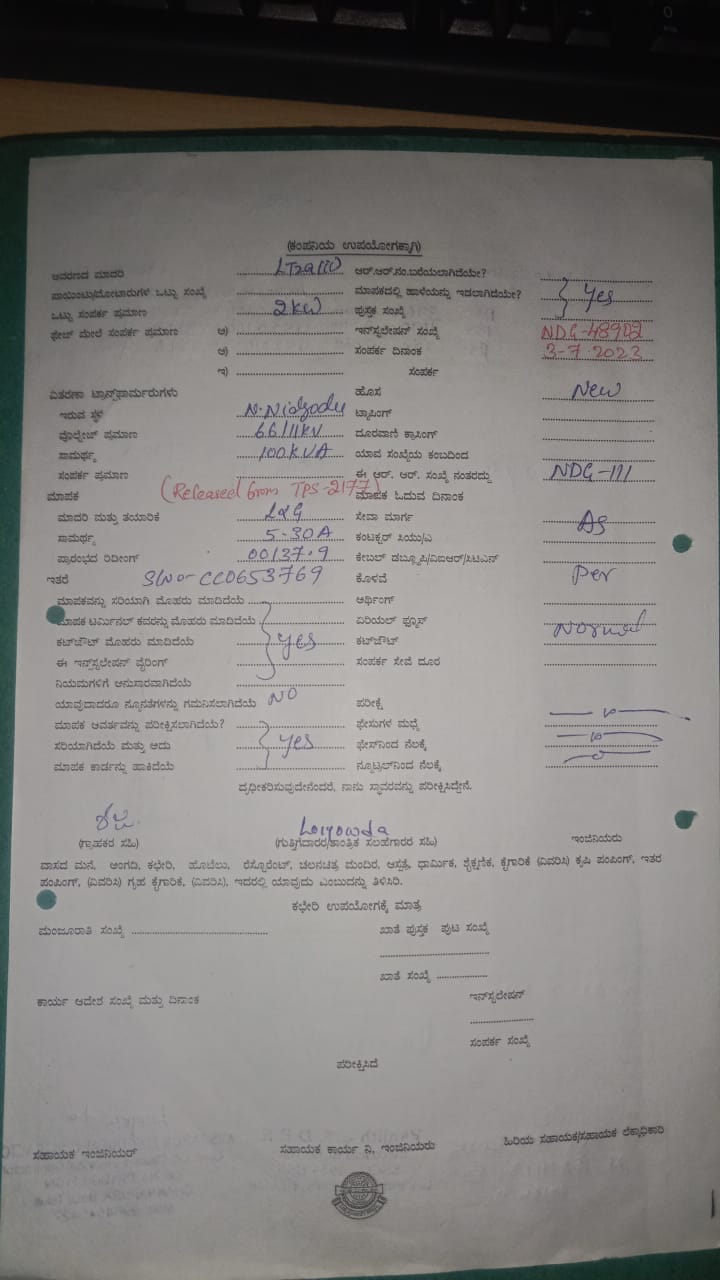 (ಕಂಪನಿಯ ಉಪಯೋಗಕ್ಕಾಗಿ)
ಆವರಣದ ಮಾದರಿ LT2a(ii) ಆರ್.ಆರ್.ನಂ.ಬರೆಯಲಾಗಿದೆಯೇ?
ಪಾಯಿಂಟು/ಮೋಟಾರುಗಳ ಒಟ್ಟು ಸಂಖ್ಯೆ ಮಾಪಕದಲ್ಲಿ ಹಾಳೆಯನ್ನು ಇಡಲಾಗಿದೆಯೇ? Yes
ಒಟ್ಟು ಸಂಪರ್ಕ ಪ್ರಮಾಣ 2kW ಪುಸ್ತಕ ಸಂಖ್ಯೆ
ಫೇಜ್ ಮೇಲೆ ಸಂಪರ್ಕ ಪ್ರಮಾಣ ಅ) ಇನ್‌ಸ್ಟಲೇಷನ್ ಸಂಖ್ಯೆ
ಆ) ಸಂಪರ್ಕ ದಿನಾಂಕ
ಇ) ಸಂಪರ್ಕ
ವಿತರಣಾ ಟ್ರಾನ್ಸ್‌ಫಾರ್ಮರುಗಳು ಹೊಸ New
ಇರುವ ಸ್ಥಳ ಟ್ಯಾಪಿಂಗ್
ವೊಲ್ಟೇಜ್ ಪ್ರಮಾಣ 66/11kV ದೂರವಾಣಿ ಕ್ರಾಸಿಂಗ್
ಸಾಮರ್ಥ್ಯ 100kVA ಯಾವ ಸಂಖ್ಯೆಯ ಕಂಬದಿಂದ
ಸಂಪರ್ಕ ಪ್ರಮಾಣ ಈ ಆರ್. ಆರ್. ಸಂಖ್ಯೆ ನಂತರದ್ದು NDG-111
ಮಾಪಕ (Released from TPS-2177) ಮಾಪಕ ಓದುವ ದಿನಾಂಕ
ಮಾದರಿ ಮತ್ತು ತಯಾರಿಕೆ L&G ಸೇವಾ ಮಾರ್ಗ
ಸಾಮರ್ಥ್ಯ 5-30A ಕಂಟಕ್ಟರ್ ಸಿಯು/ಎ
ಪ್ರಾರಂಭದ ರೀಡಿಂಗ್ 00137.9 ಕೇಬಲ್ ಡಬ್ಲ್ಯೂಪಿ/ವಿಐಆರ್/ಸಿಟಿಎಸ್
ಇತರೆ SlNo-CC0653769 ಕೊಳವೆ per
ಮಾಪಕವನ್ನು ಸರಿಯಾಗಿ ಮೊಹರು ಮಾಡಿದೆಯೆ ಆರ್ಥಿಂಗ್
ಮಾಪಕ ಟರ್ಮಿನಲ್ ಕವರನ್ನು ಮೊಹರು ಮಾಡಿದೆಯೆ ಏರಿಯಲ್ ಫ್ಯೂಸ್ Normal
ಕಟ್‌ಔಟ್ ಮೊಹರು ಮಾಡಿದೆಯೆ yes ಕಟ್‌ಔಟ್
ಈ ಇನ್‌ಸ್ಟಲೇಷನ್ ವೈರಿಂಗ್ ಸಂಪರ್ಕ ಸೇವೆ ದೂರ
ನಿಯಮಗಳಿಗೆ ಅನುಸಾರವಾಗಿದೆಯೆ
ಯಾವುದಾದರೂ ನ್ಯೂನತೆಗಳನ್ನು ಗಮನಿಸಲಾಗಿದೆಯೆ NO ಪರೀಕ್ಷೆ
ಮಾಪಕ ಆವರ್ತವನ್ನು ಪರೀಕ್ಷಿಸಲಾಗಿದೆಯೆ? ಫೇಸುಗಳ ಮಧ್ಯೆ
ಸರಿಯಾಗಿದೆಯೆ ಮತ್ತು ಅದು yes ಫೇಸ್‌ನಿಂದ ನೆಲಕ್ಕೆ
ಮಾಪಕ ಕಾರ್ಡನ್ನು ಹಾಕಿದೆಯೆ ನ್ಯೂಟ್ರಲ್‌ನಿಂದ ನೆಲಕ್ಕೆ
ದೃಢೀಕರಿಸುವುದೇನೆಂದರೆ, ನಾನು ಸ್ಥಾವರವನ್ನು ಪರೀಕ್ಷಿಸಿದ್ದೇನೆ.
(ಗ್ರಾಹಕರ ಸಹಿ) (ಗುತ್ತಿಗೆದಾರರ/ತಾಂತ್ರಿಕ ಸಲಹೆಗಾರರ ಸಹಿ) ಇಂಜಿನಿಯರು
ವಾಸದ ಮನೆ, ಅಂಗಡಿ, ಕಛೇರಿ, ಹೊಟೆಲು, ರೆಸ್ಟೋರೆಂಟ್, ಚಲನಚಿತ್ರ ಮಂದಿರ, ಆಸ್ಪತ್ರೆ, ಧಾರ್ಮಿಕ, ಶೈಕ್ಷಣಿಕ, ಕೈಗಾರಿಕೆ (ವಿವರಿಸಿ) ಕೃಷಿ ಪಂಪಿಂಗ್, ಇತರ
ಪಂಪಿಂಗ್, (ವಿವರಿಸಿ) ಗೃಹ ಕೈಗಾರಿಕೆ, (ವಿವರಿಸಿ), ಇದರಲ್ಲಿ ಯಾವುದು ಎಂಬುದನ್ನು ತಿಳಿಸಿರಿ.
ಕಛೇರಿ ಉಪಯೋಗಕ್ಕೆ ಮಾತ್ರ
ಮಂಜೂರಾತಿ ಸಂಖ್ಯೆ ಖಾತೆ ಪುಸ್ತಕ ಪುಟ ಸಂಖ್ಯೆ
ಖಾತೆ ಸಂಖ್ಯೆ
ಕಾರ್ಯ ಆದೇಶ ಸಂಖ್ಯೆ ಮತ್ತು ದಿನಾಂಕ ಇನ್‌ಸ್ಟಲೇಷನ್
ಸಂಪರ್ಕ ಸಂಖ್ಯೆ
ಪರೀಕ್ಷಿಸಿದೆ
ಸಹಾಯಕ ಇಂಜಿನಿಯರ್ ಸಹಾಯಕ ಕಾರ್ಯ ನಿ, ಇಂಜಿನಿಯರು ಹಿರಿಯ ಸಹಾಯಕ/ಸಹಾಯಕ ಲೆಕ್ಕಾಧಿಕಾರಿ